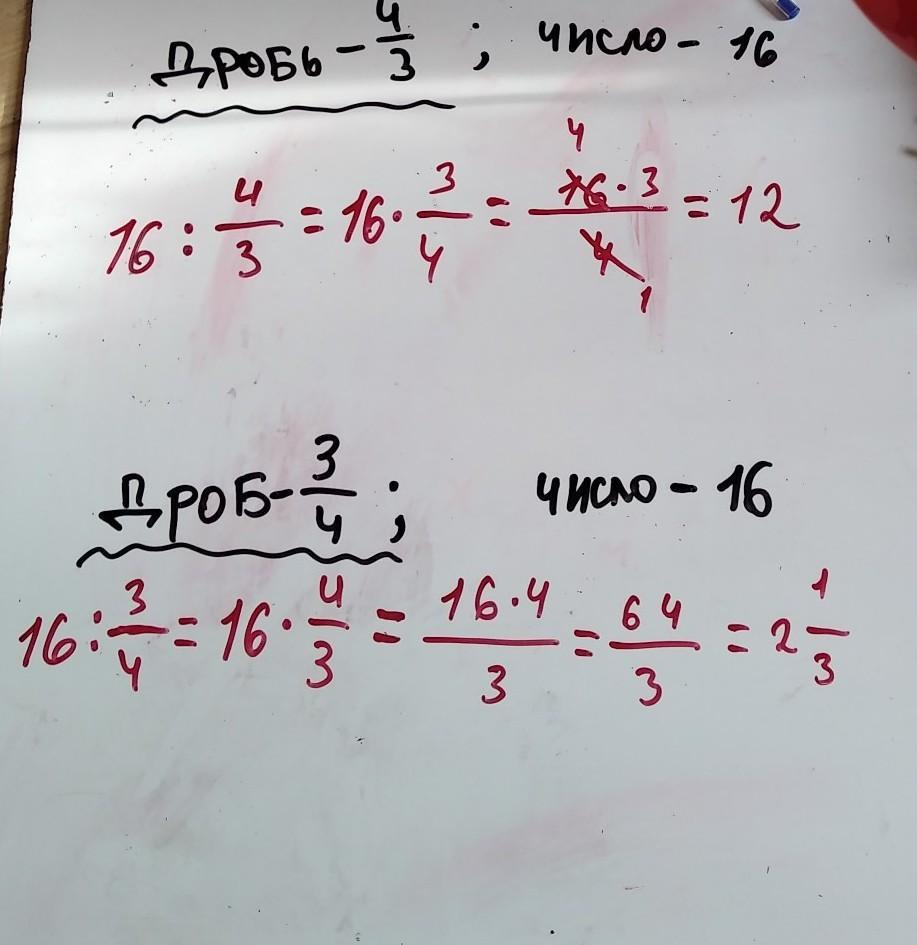 ДРОБЬ - 4/3 ; число - 16
16 : 4/3 = 16 · 3/4 = 16 4 · 3 / 4 1 = 12
ДРОБ - 3/4 ; число - 16
16 : 3/4 = 16 · 4/3 = 16 · 4 / 3 = 64/3 = 2 1/3